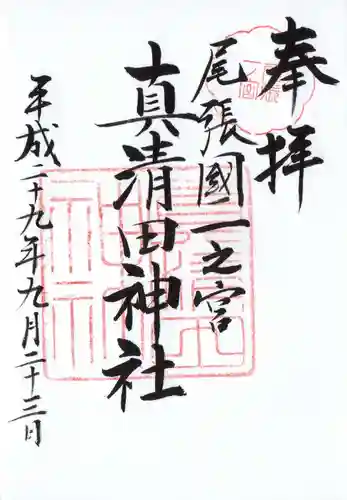 奉拝
尾張國一之宮
真清田神社
平成二十九年九月二十三日